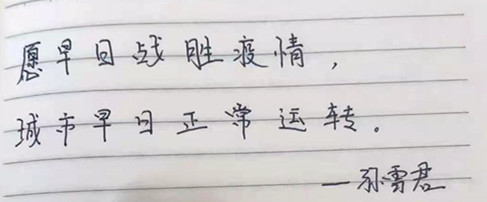 愿早日战胜疫情，
城市早日正常运转。
—孙雪君